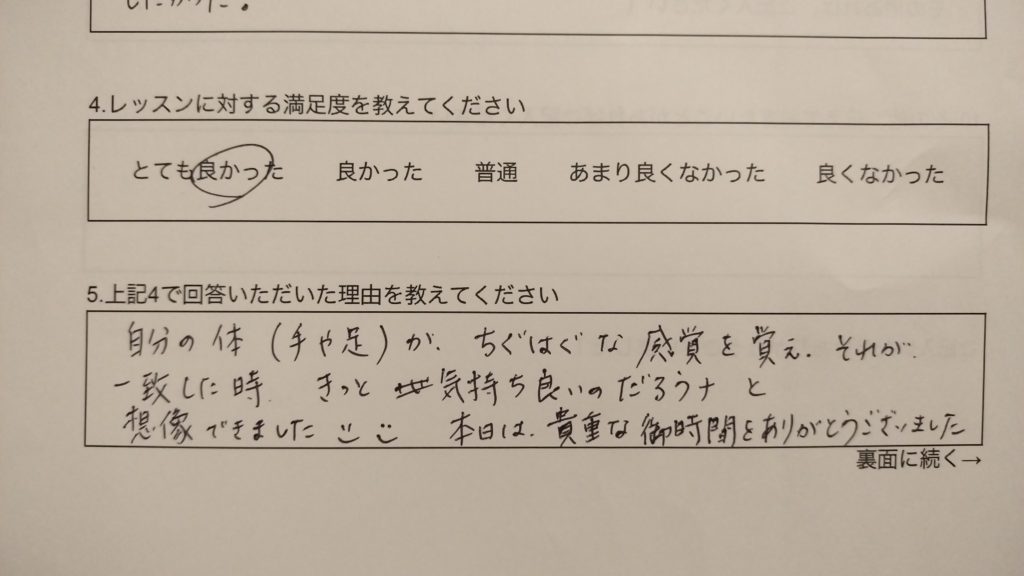 したかった。
4.レッスンに対する満足度を教えてください
とても良かった 良かった 普通 あまり良くなかった 良くなかった
5.上記4で回答いただいた理由を教えてください
自分の体(手や足)が、ちぐはぐな感覚を覚え、それが、
一致した時、きっと気持ち良いのだろうナと
想像できました 本日は、貴重な御時間をありがとうございました
裏面に続く→